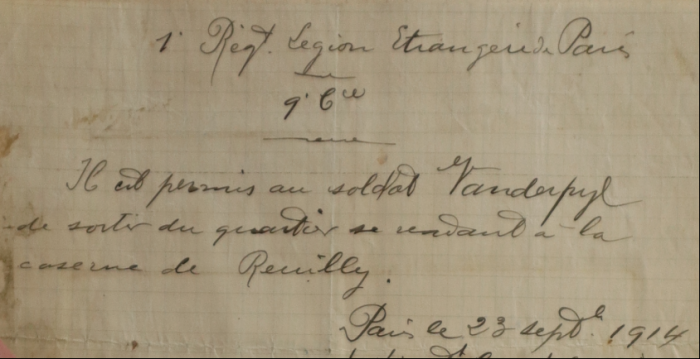 1ᵉ Régt. Legion Etrangère de Paris
9ᵉ Cie
Il est permis au soldat Vanderpyl
de sortir du quartier se rendant à la
caserne de Reuilly.
Paris le 23 septb. 1914